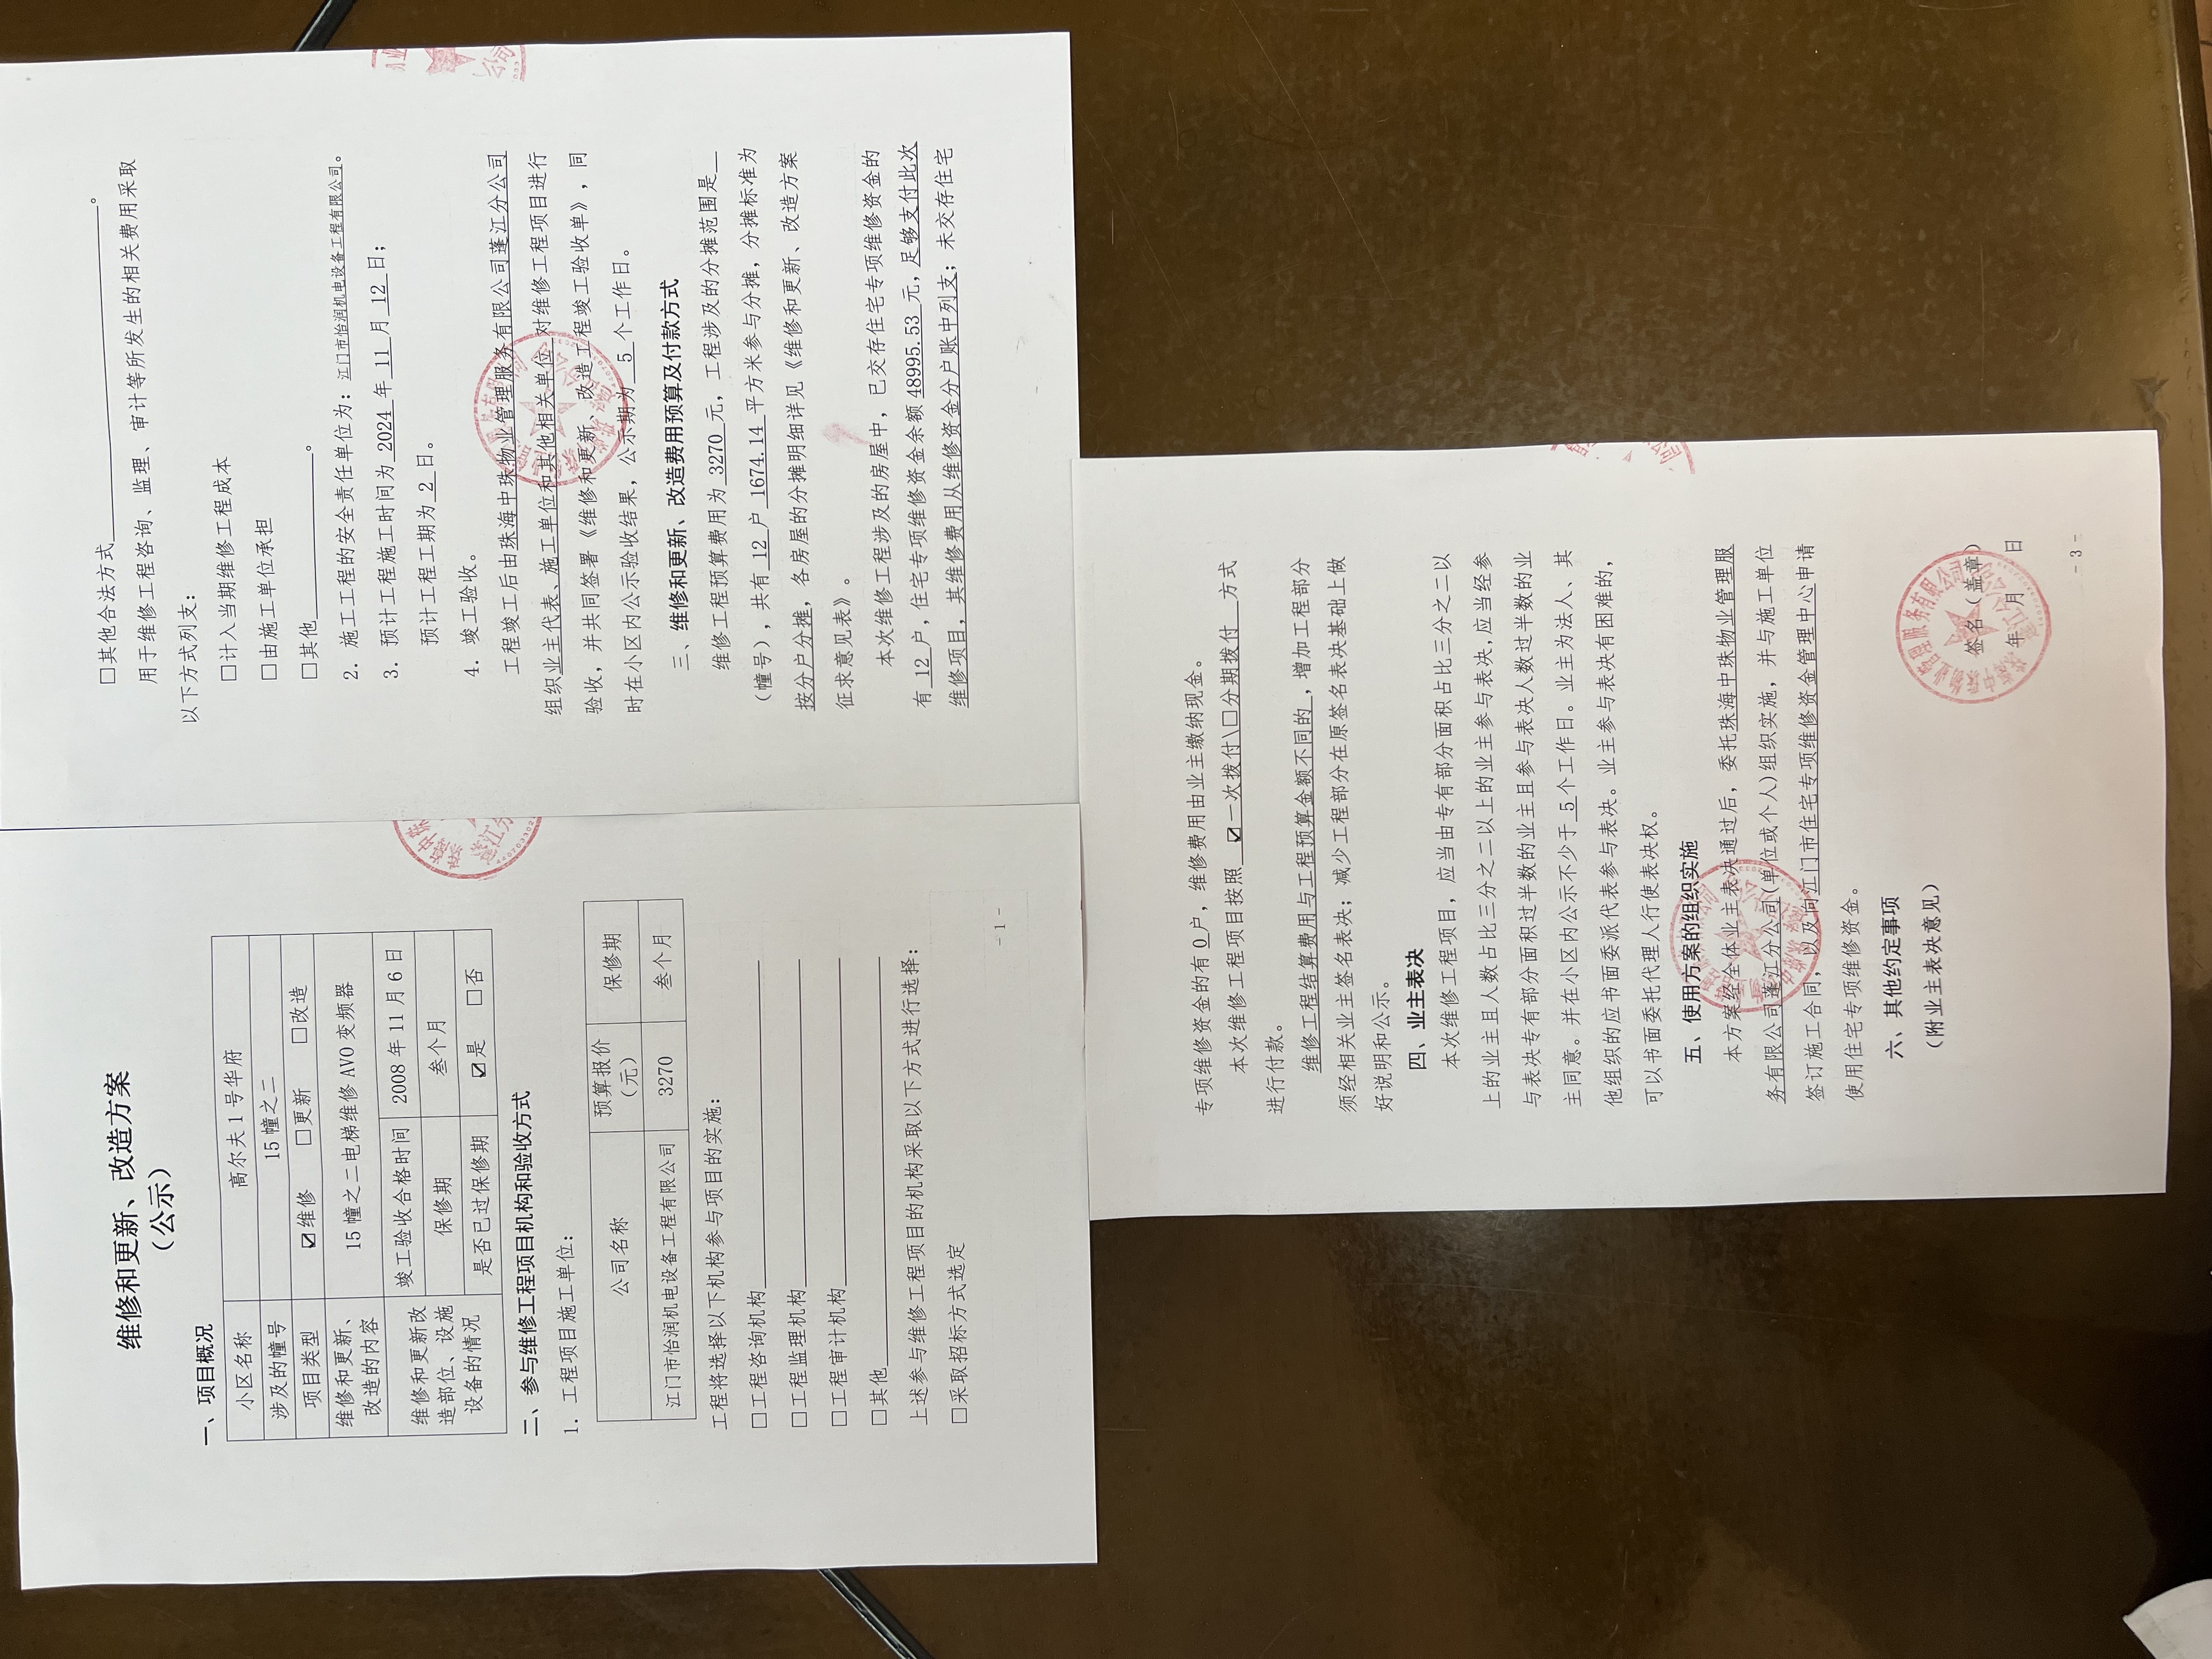 维修和更新、改造方案
（公示）
一、项目概况
小区名称 高尔夫1号华府
涉及的幢号 15幢之二
项目类型 ☑维修 □更新 □改造
维修和更新、改造的内容 15幢之二电梯维修AVO变频器
维修和更新改造部位、设施设备的情况 竣工验收合格时间 2008年11月6日
保修期 叁个月
是否已过保修期 ☑是 □否
二、参与维修工程项目机构和验收方式
1. 工程项目施工单位：
公司名称 预算报价（元） 保修期
江门市怡润机电设备工程有限公司 3270 叁个月
工程将选择以下机构参与项目的实施：
□工程咨询机构
□工程监理机构
□工程审计机构
□其他
上述参与维修工程项目的机构采取以下方式进行选择：
□采取招标方式选定
-1-
□其他合法方式。
用于维修工程咨询、监理、审计等所发生的相关费用采取
以下方式列支：
□计入当期维修工程成本
□由施工单位承担
□其他。
2. 施工工程的安全责任单位为：江门市怡润机电设备工程有限公司。
3. 预计工程施工时间为2024年11月12日；
预计工程工期为2日。
4. 竣工验收。
工程竣工后由珠海中珠物业管理服务有限公司蓬江分公司
组织业主代表、施工单位和其他相关单位对维修工程项目进行
验收，并共同签署《维修和更新、改造工程竣工验收单》，同
时在小区内公示验收结果，公示期为5个工作日。
三、维修和更新、改造费用预算及付款方式
维修工程预算费用为3270元，工程涉及的分摊范围是
（幢号），共有12户1674.14平方米参与分摊，分摊标准为
按分户分摊，各房屋的分摊明细详见《维修和更新、改造方案
征求意见表》。
本次维修工程涉及的房屋中，已交存住宅专项维修资金的
有12户，住宅专项维修资金余额48995.53元，足够支付此次
维修项目，其维修费用从维修资金分户账中列支；未交存住宅
专项维修资金的有0户，维修费用由业主缴纳现金。
本次维修工程项目按照☑一次拨付\□分期拨付方式
进行付款。
维修工程结算费用与工程预算金额不同的，增加工程部分
须经相关业主签名表决；减少工程部分在原签名表决基础上做
好说明和公示。
四、业主表决
本次维修工程项目，应当由专有部分面积占比三分之二以
上的业主且人数占比三分之二以上的业主参与表决,应当经参
与表决专有部分面积过半数的业主且参与表决人数过半数的业
主同意。并在小区内公示不少于5个工作日。业主为法人、其
他组织的应书面委派代表参与表决。业主参与表决有困难的，
可以书面委托代理人行使表决权。
五、使用方案的组织实施
本方案经全体业主表决通过后，委托珠海中珠物业管理服
务有限公司蓬江分公司(单位或个人)组织实施，并与施工单位
签订施工合同，以及向江门市住宅专项维修资金管理中心申请
使用住宅专项维修资金。
六、其他约定事项
（附业主表决意见）
签名（盖章）
年 月 日
-3-